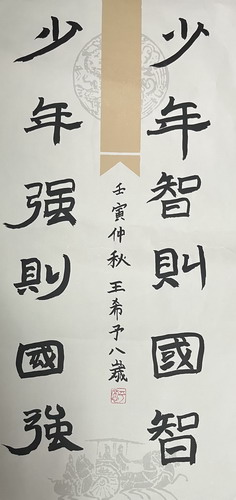 少年智則國智
少年强則國強
壬寅仲秋 王希予八歲